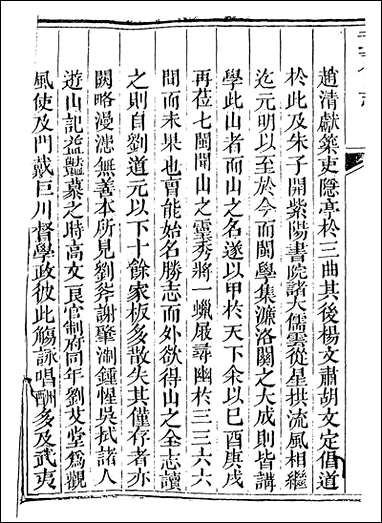 趙清獻築吏隱亭於三曲其後楊文肅胡文定倡道
於此及朱子開紫陽書院諸大儒雲從星拱流風相繼
迄元明以至於今而閩學集濂洛關之大成則皆講
學此山者而山之名遂以甲於天下余以已酉庚戌
再莅七閩閩山之靈秀將一蠟屐尋幽於三三六六
間而未果也曹能始名勝志而外欲得山之全志讀
之則自劉道元以下十餘家板多散失其僅存者亦
闕略漫漶無善本所見劉斧謝肇淛鍾惺吳拭諸人
遊山記益豔慕之時高文良官制府同年劉艾堂為觀
風使及門戴巨川督學政彼此觴詠唱酬多及武夷